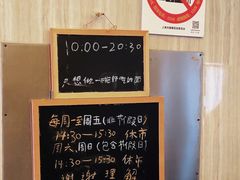 10:00-20:30
只想做一碗好吃的面
每周一至周五(非节假日)
14:30—15:30 休市
周六、周日(包含节假日)
14:30-15:30 休午
谢谢理解